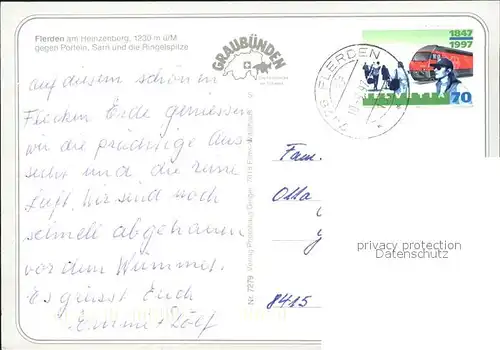 Flerden am Heinzenberg, 1230 m ü/M
gegen Portein, Sarn und die Ringelspitze
GRAUBÜNDEN
1847
1997
HELVETIA
70
7426 FLERDEN
auf diesem schönen
Flecken Erde geniessen
wir die prächtige Aus
sicht und die reine
Luft. Wir sind noch
schnell abgehauen
vor dem Wümmet.
Es grüsst Euch
Emmi + Dölf
Nr. 7279 Verlag Photohaus Geiger, 7018 Flims-Waldhaus
Fam.
Otto
8415
privacy protection
Datenschutz